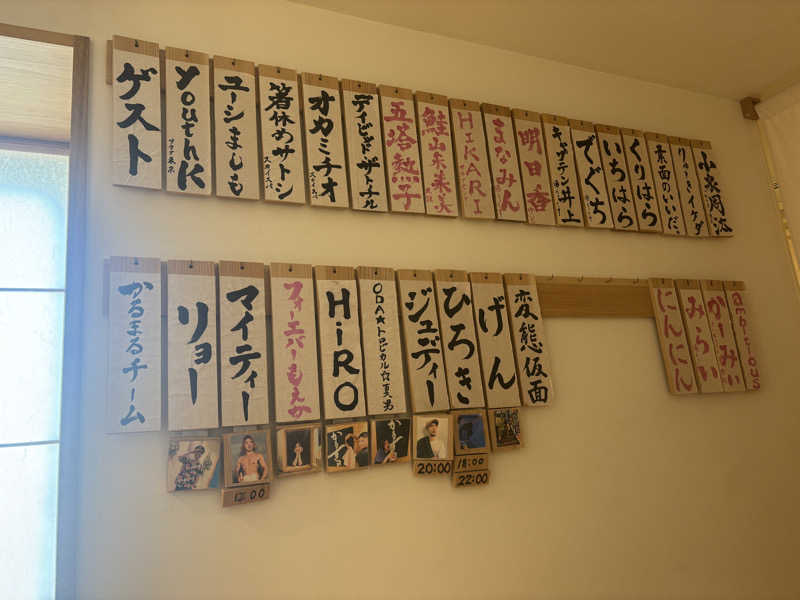 ゲスト
youthK
ユージましも
箸休めサトシ
オカミチオ
デイビッドザトナル
五塔熱子
鮭山未菜美
HIKARI
まなみん
明日香
キャプテン井上
でぐち
いちはら
くりはら
素面のいいだ。
りゅうきイケダ
小泉周汰
かるまるチーム
リョー
マイティー
フォーエバーもえか
HiRO
ODA★トロピカル☆夏男
ジュディー
ひろき
げん
変態仮面
にんにん
みらい
かーみぃ
ambitious
20:00
18:00
22:00